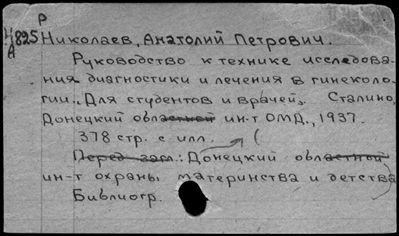 Р
Ц825 Николаев, Анатолий Петрович.
А
Руководство к технике исследова-
ния диагностики и лечения в гинеколо-
гии. Для студентов и врачей. Сталино,
Донецкий областной ин-т ОМД., 1937.
378 стр. с илл.
Перед загл.: Донецкий областной
ин-т охраны материнства и детства
Библиогр.